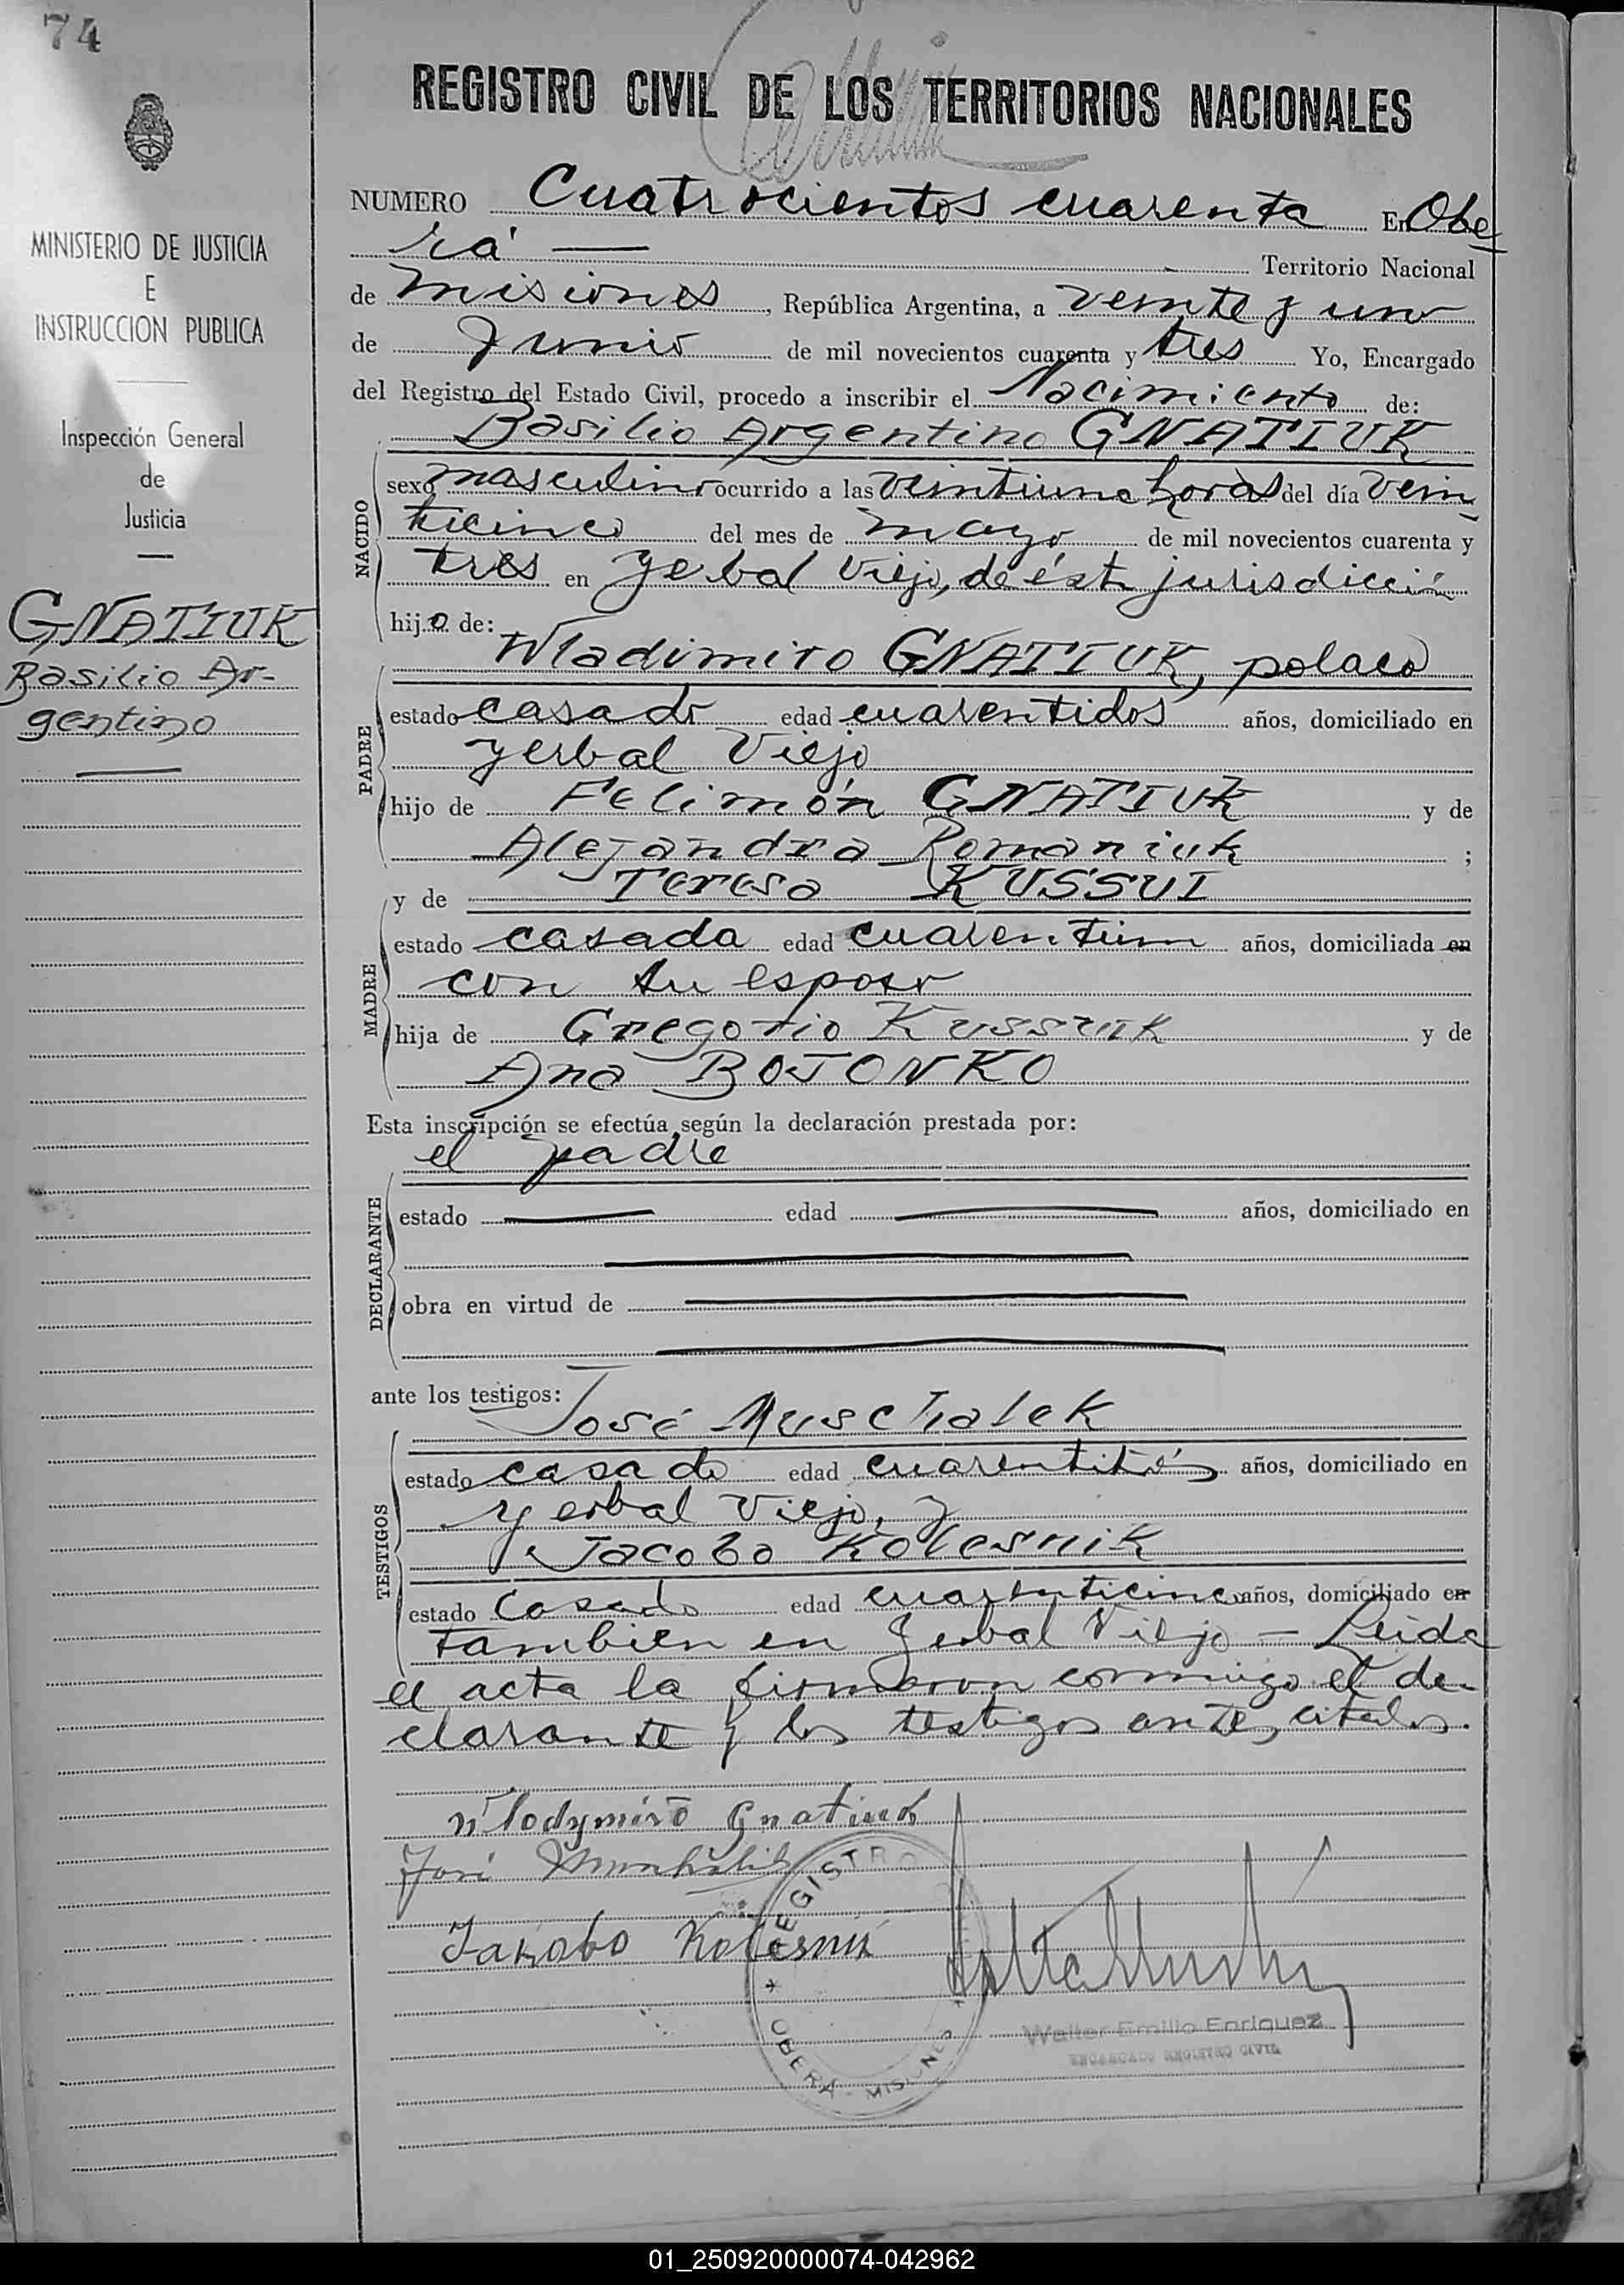 74
REGISTRO CIVIL DE LOS TERRITORIOS NACIONALES
NUMERO Cuatrocientos cuarenta En Obe
rá —
Territorio Nacional
de Misiones, República Argentina, a veinte y uno
de Junio de mil novecientos cuarenta y tres Yo, Encargado
del Registro del Estado Civil, procedo a inscribir el Nacimiento de:
MINISTERIO DE JUSTICIA
E
INSTRUCCION PUBLICA
Inspección General
de
Justicia
GNATIUK
Basilio Ar-
gentino
NACIDO
Basilio Argentino GNATIUK
sexo masculino ocurrido a las veintiuna horas del día vein
ticinco del mes de mayo de mil novecientos cuarenta y
tres en Yerbal Viejo, de ésta jurisdicción
hijo de:
PADRE
Wladimiro GNATIUK, polaco
estado casado edad cuarentidos años, domiciliado en
Yerbal Viejo
hijo de Felimón GNATIUK y de
Alejandra Romaniuk ;
MADRE
y de Teresa KUSSUI
estado casada edad cuarentiun años, domiciliada en
con su esposo
hija de Gregorio Kussuik y de
Ana BOJONKO
Esta inscripción se efectúa según la declaración prestada por:
DECLARANTE
el padre
estado — edad — años, domiciliado en
—
obra en virtud de —
—
ante los testigos:
TESTIGOS
José Muschalek
estado casado edad cuarentitrés años, domiciliado en
Yerbal Viejo, y
Jacobo Kolesnik
estado Casado edad cuarenticinco años, domiciliado en
tambien en Yerbal Viejo — Leida
el acta la firmaron conmigo el de-
clarante y los testigos antes citados.
Wlodymiro Gnatiuk
José
Jakobo Kolesnik
REGISTRO
* OBERA - MISIONES
Walter Emilio Enriquez
ENCARGADO REGISTRO CIVIL
01_250920000074-042962